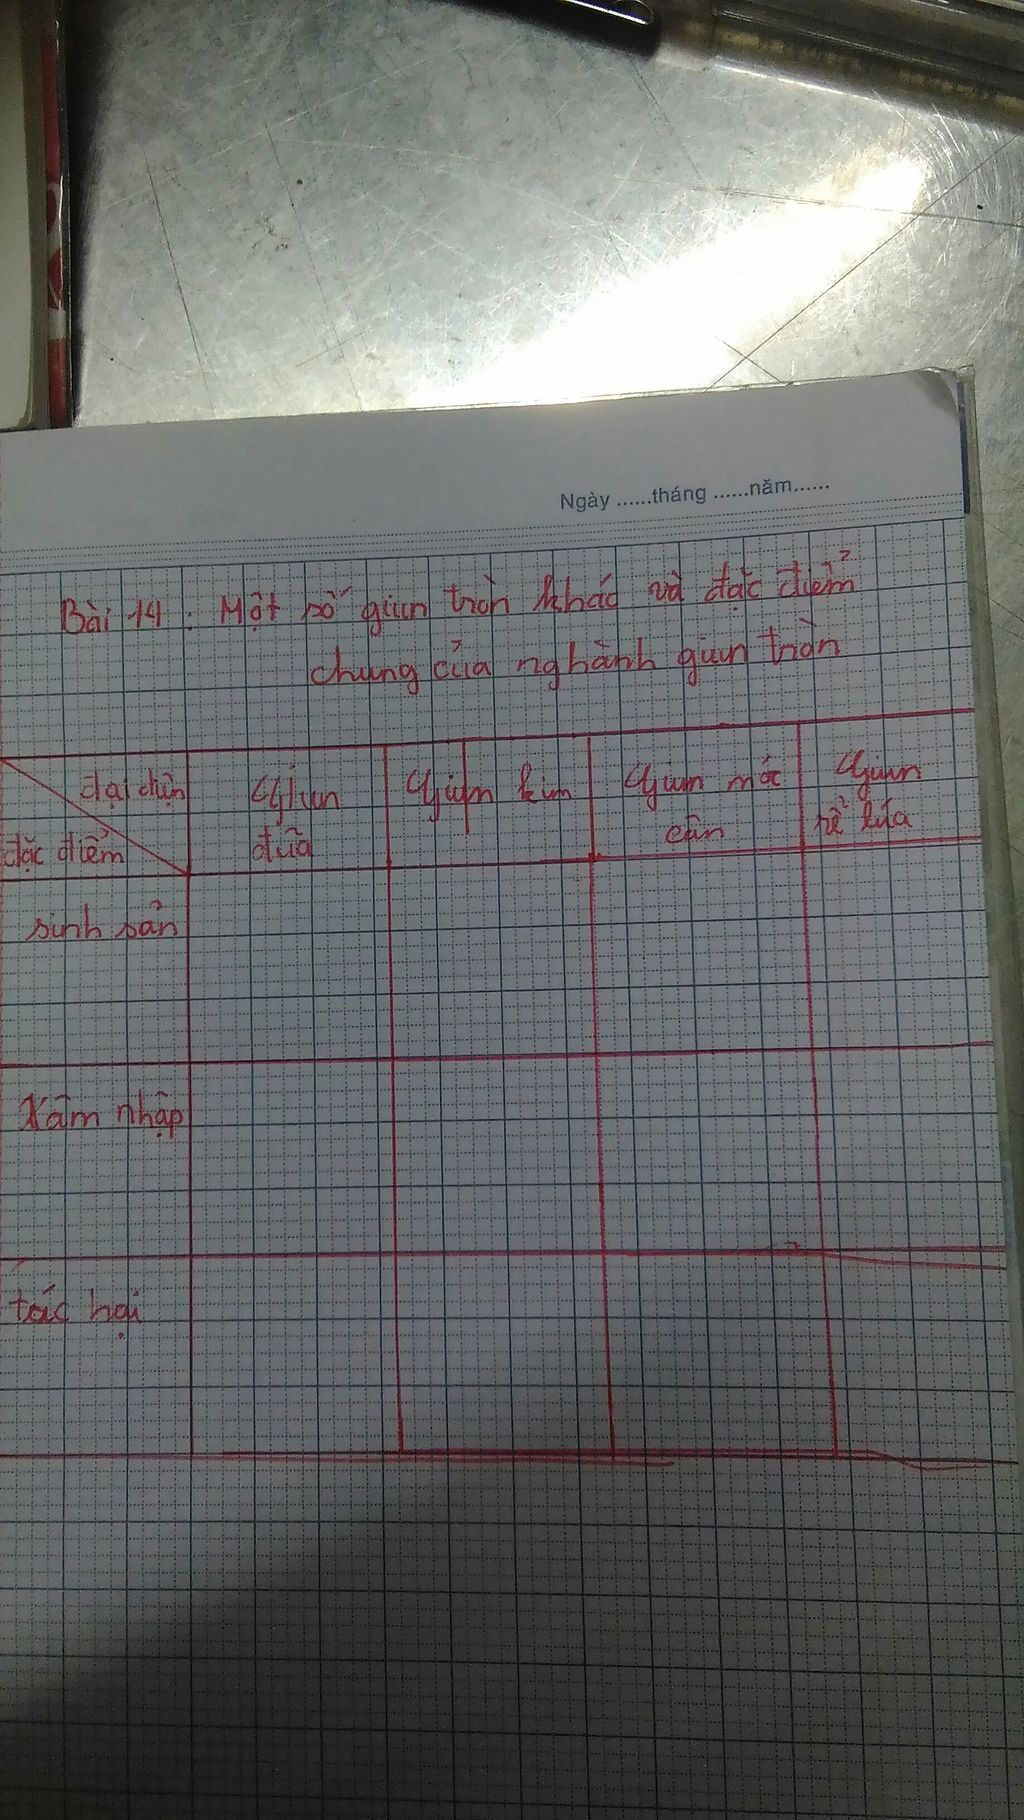 Ngày ......tháng ......năm......
Bài 14 : Một số giun tròn khác và đặc điểm
chung của nghành giun tròn
đại diện
đặc điểm
Giun
đũa
Giun kim
Giun móc
câu
Giun
rễ lúa
sinh sản
Xâm nhập
tác hại